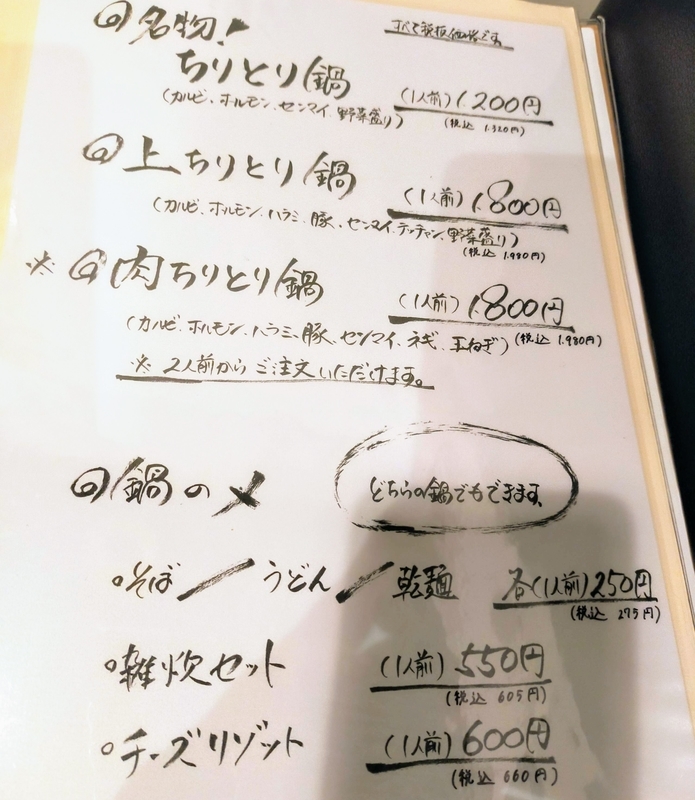 ◎名物! すべて税抜価格です。
ちりとり鍋 (1人前) 1.200円
(カルビ、ホルモン、センマイ、野菜盛り) (税込 1.320円)
◎上ちりとり鍋 (1人前) 1.800円
(カルビ、ホルモン、ハラミ、豚、センマイ、テッチャン、野菜盛り)
(税込 1.980円)
※ ◎肉ちりとり鍋 (1人前) 1.800円
(カルビ、ホルモン、ハラミ、豚、センマイ、ネギ、玉ねぎ) (税込 1.980円)
※ 2人前からご注文いただけます。
◎鍋の〆 どちらの鍋でもできます。
○そば/うどん/乾麺 各(1人前) 250円
(税込 275円)
○雑炊セット (1人前) 550円
(税込 605円)
○チーズリゾット (1人前) 600円
(税込 660円)